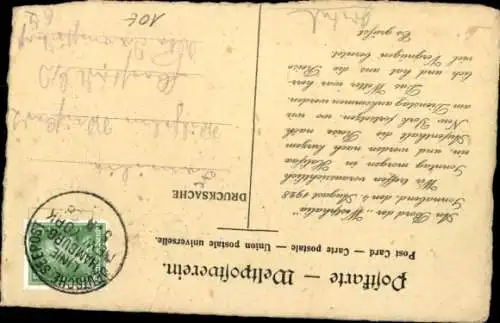 Postkarte — Weltpostverein.
Post Card — Carte postale — Union postale universelle.
DRUCKSACHE
An Bord der „Westphalia"
Sonnabend den 4. August 1928
Wir treffen voraussichtlich
Sonntag morgen in Halifax
ein, und werden nach kurzem
Aufenthalt die Reise nach
New York fortsetzen, wo wir
am Dienstag ankommen werden.
Das Wetter war herr-
lich und hat uns die Reise
viel Vergnügen bereitet.
Es grüsst
Familie
Wilhelm
DEUTSCHE SEEPOST
LINIE
HAMBURG
NEW YORK
10t